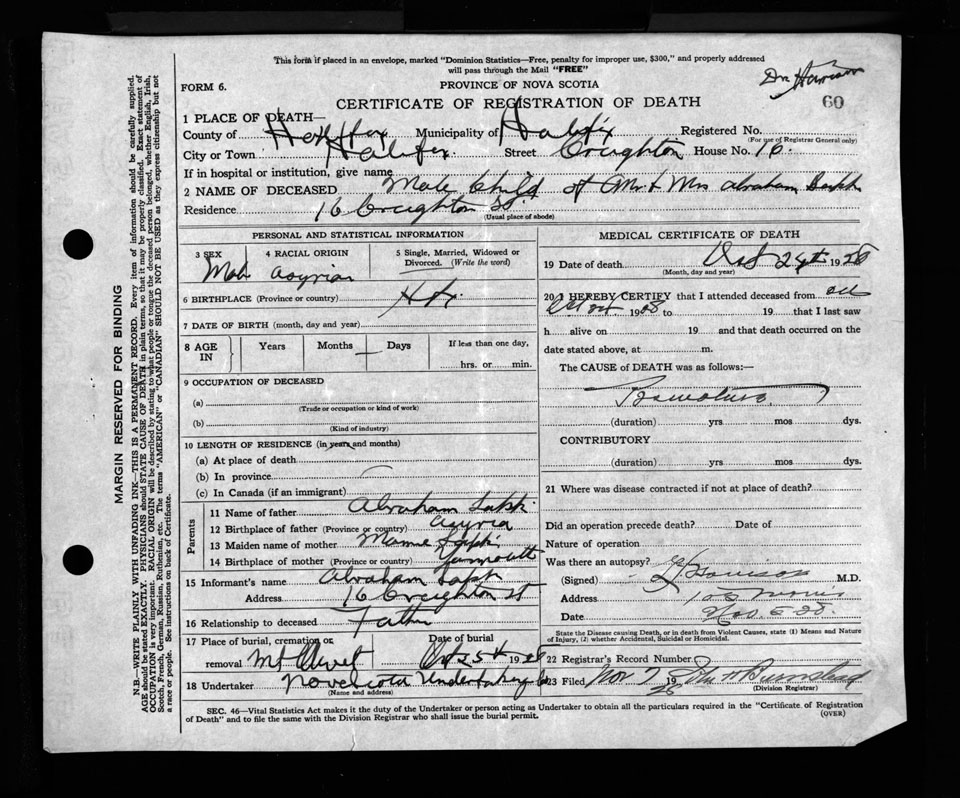 This form if placed in an envelope, marked "Dominion Statistics—Free, penalty for improper use, $300," and properly addressed
will pass through the Mail "FREE"
Dr Harrison
FORM 6.
PROVINCE OF NOVA SCOTIA
60
CERTIFICATE OF REGISTRATION OF DEATH
1 PLACE OF DEATH—
County of Halifax Municipality of Halifax Registered No.
(For use of Registrar General only)
City or Town Halifax Street Creighton House No. 16.
If in hospital or institution, give name
2 NAME OF DECEASED Male Child of Mr & Mrs Abraham
Residence 16 Creighton St.
(Usual place of abode)
PERSONAL AND STATISTICAL INFORMATION
3 SEX 4 RACIAL ORIGIN 5 Single, Married, Widowed or
Divorced. (Write the word)
Male Asyrian
6 BIRTHPLACE (Province or country) Hfx.
7 DATE OF BIRTH (month, day and year)
8 AGE IN Years Months Days If less than one day,
hrs. or min.
9 OCCUPATION OF DECEASED
(a)
(Trade or occupation or kind of work)
(b)
(Kind of industry)
10 LENGTH OF RESIDENCE (in years and months)
(a) At place of death
(b) In province
(c) In Canada (if an immigrant)
Parents
11 Name of father Abraham
12 Birthplace of father (Province or country) Asyria
13 Maiden name of mother Mamie
14 Birthplace of mother (Province or country) Yarmouth
15 Informant's name Abraham
Address 16 Creighton St
16 Relationship to deceased Father
17 Place of burial, cremation or removal Mt Olivet Date of burial Oct 25th 1928
18 Undertaker Nova Scotia Undertaking Co
(Name and address)
MEDICAL CERTIFICATE OF DEATH
19 Date of death Oct 24th 1928
(Month, day and year)
20 I HEREBY CERTIFY that I attended deceased from
1928 to 19 that I last saw
h alive on 19 and that death occurred on the
date stated above, at m.
The CAUSE of DEATH was as follows:—
Premature
(duration) yrs mos dys.
CONTRIBUTORY
(duration) yrs mos dys.
21 Where was disease contracted if not at place of death?
Did an operation precede death? Date of
Nature of operation
Was there an autopsy?
(Signed) Harrison M.D.
Address
Date Nov. 5 28.
State the Disease causing Death, or in death from Violent Causes, state (1) Means and Nature
of Injury, (2) whether Accidental, Suicidal or Homicidal.
22 Registrar's Record Number
23 Filed Nov 7 1928
(Division Registrar)
SEC. 46—Vital Statistics Act makes it the duty of the Undertaker or person acting as Undertaker to obtain all the particulars required in the "Certificate of Registration
of Death" and to file the same with the Division Registrar who shall issue the burial permit.
(OVER)
MARGIN RESERVED FOR BINDING
N.B.—WRITE PLAINLY WITH UNFADING INK—THIS IS A PERMANENT RECORD. Every item of information should be carefully supplied.
AGE should be stated EXACTLY. PHYSICIANS should STATE CAUSE OF DEATH in plain terms, so that it may be properly classified. Exact statement of
OCCUPATION is very important. RACIAL ORIGIN will be described by stating to what people or tongue the deceased person belonged, whether English, Irish,
Scotch, French, German, Russian, Ruthenian, etc. The terms "AMERICAN" or "CANADIAN" SHOULD NOT BE USED as they express citizenship but not
a race or people. See instructions on back of Certificate.